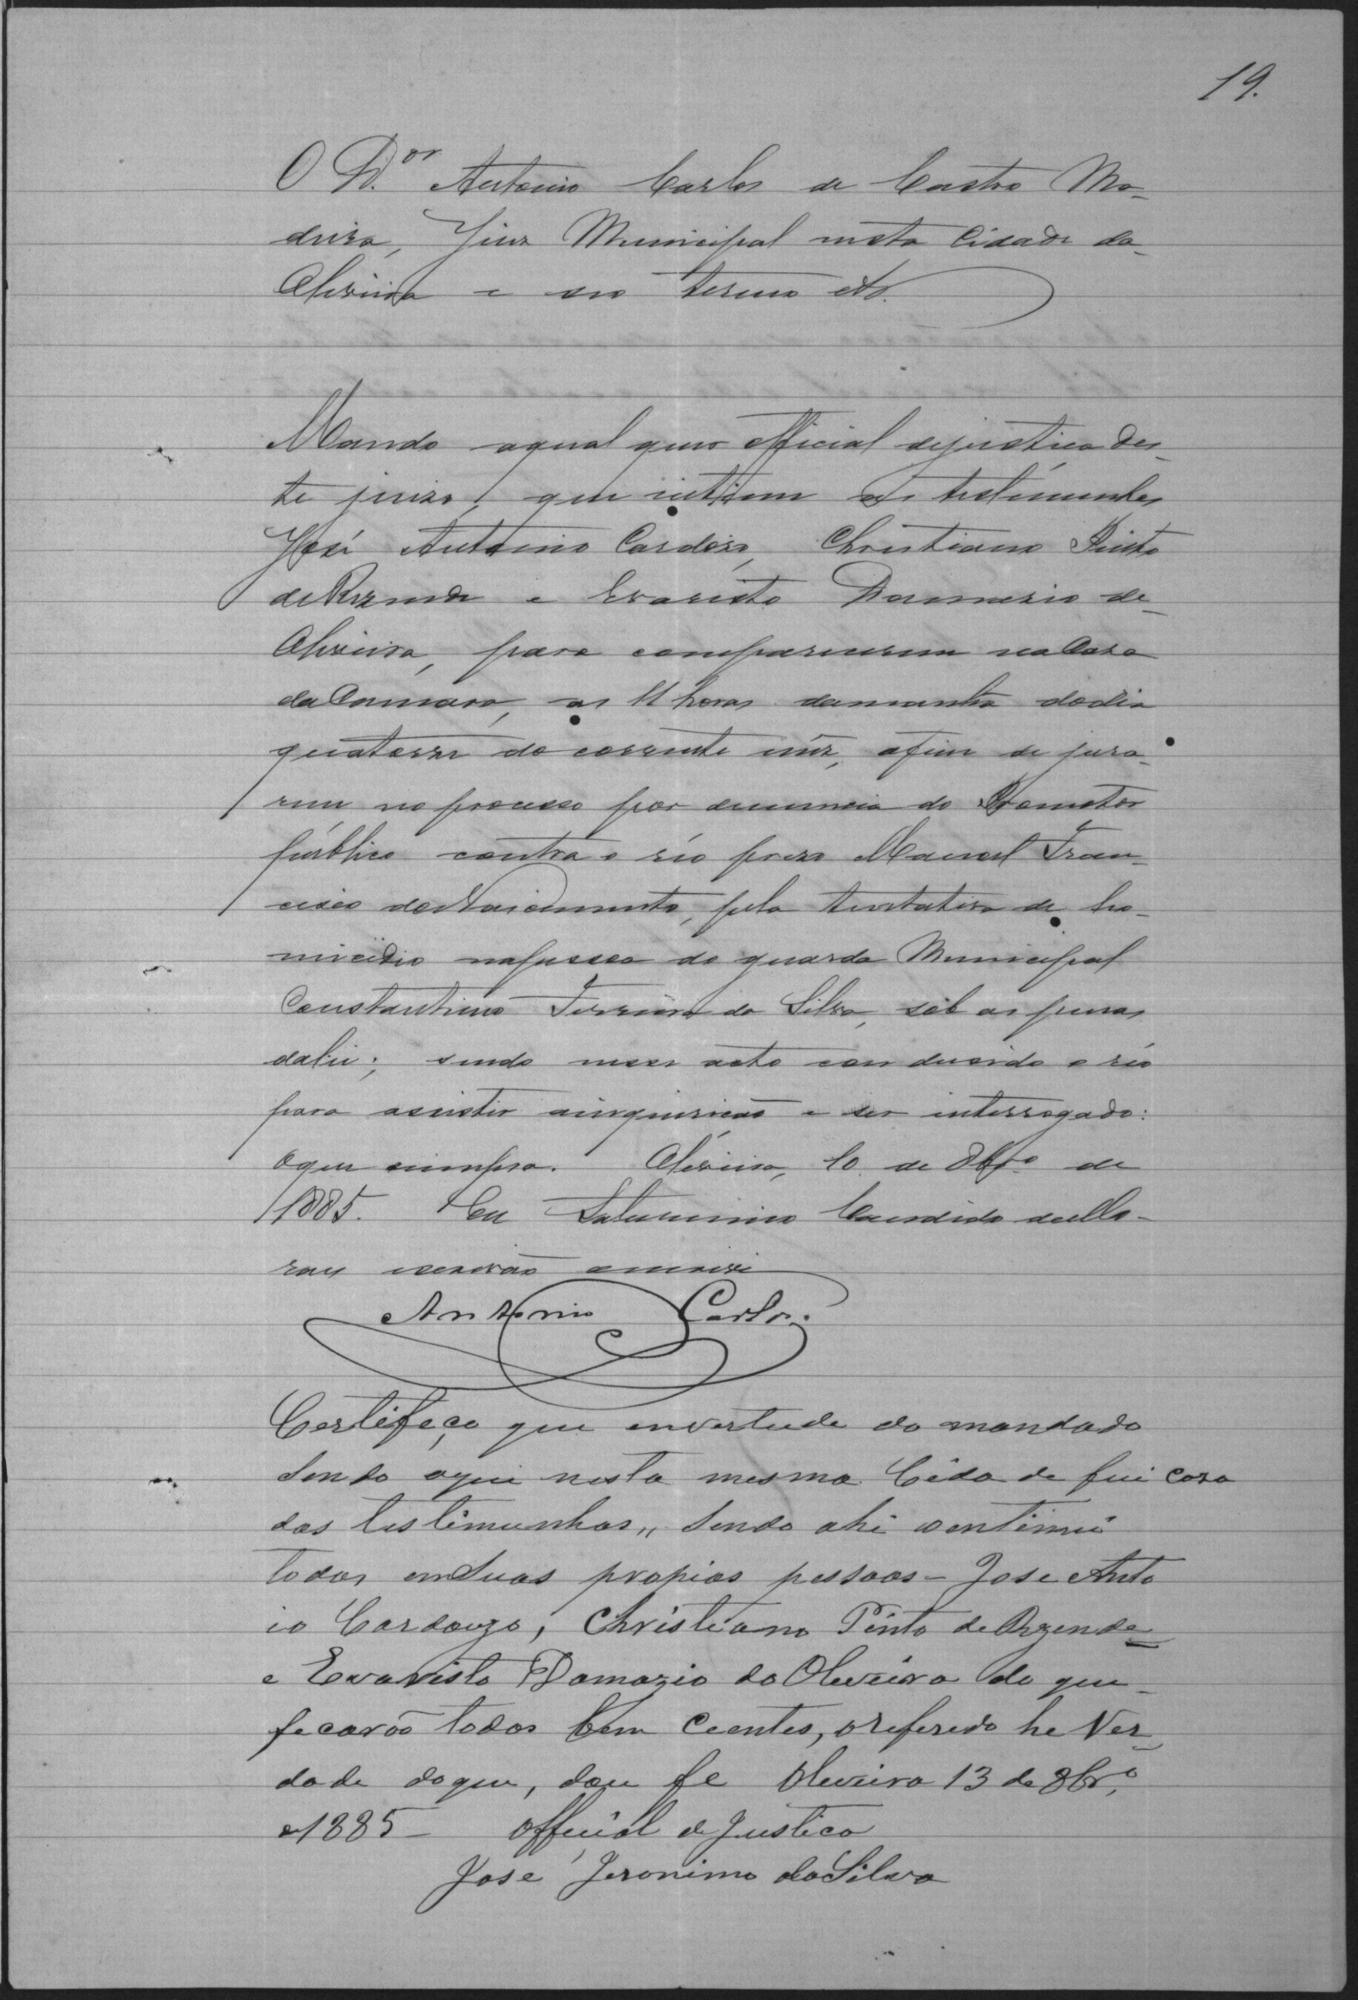 19.
O D.or Antonio Carlos de Castro Ma-
deira, Juiz Municipal nesta Cidade da
Oliveira e seu termo etc.
Mando aqual quer official dejustica des-
te juizo, que intiem as testimunhas
José Antonio Cardozo, Christiano Pinto
deRezende e Evaristo Damazio de
Oliveira, para comparecerem naCasa
daCamara, as 11 horas damanhã dodia
quatorze do corrente mêz, afim de jura-
rem no processo por denuncia do Promotor
publico contra o réo prezo Manoel Fran-
cisco doNascimento, pela tentativa de ho-
micidio napessoa do guarda Municipal
Constantino Ferreira da Silva, sob as penas
dalei; sendo nesse acto conduzido o réo
para assistir ainquirição e ser interrogado:
oque cumpra. Oliveira, 10 de 8br.o de
1885. Eu Saturnino Candido deMo-
raes escrivão escrivi
Antonio Carlos.
Certefeço que envertude do mandado
Sendo aqui nesta mesma Cidade fui caza
das testimunhas,, Sendo ahi aentimei
todas emSuas propias pessoas – Jose Anto
io Cardouzo, Christiano Pinto deRezende
e Evaristo Damazio do Oliveira do que
fecarão todos bem Ceentes, oreferedo he Ver-
dade doque, dou fe Oliveira 13 de 8br.o
e1885 – Official de Justica
Jose Jeronimo daSilva